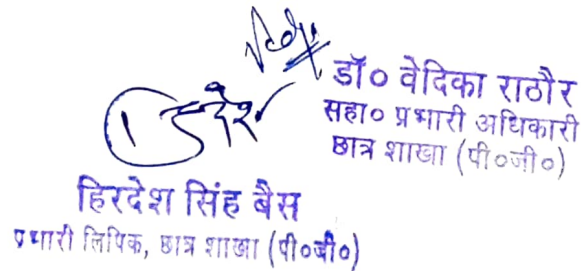 डॉ० वेदिका राठौर
सहा० प्रभारी अधिकारी
छात्र शाखा (पी०जी०)
हिरदेश
हिरदेश सिंह बैस
प्रभारी लिपिक, छात्र शाखा (पी०जी०)